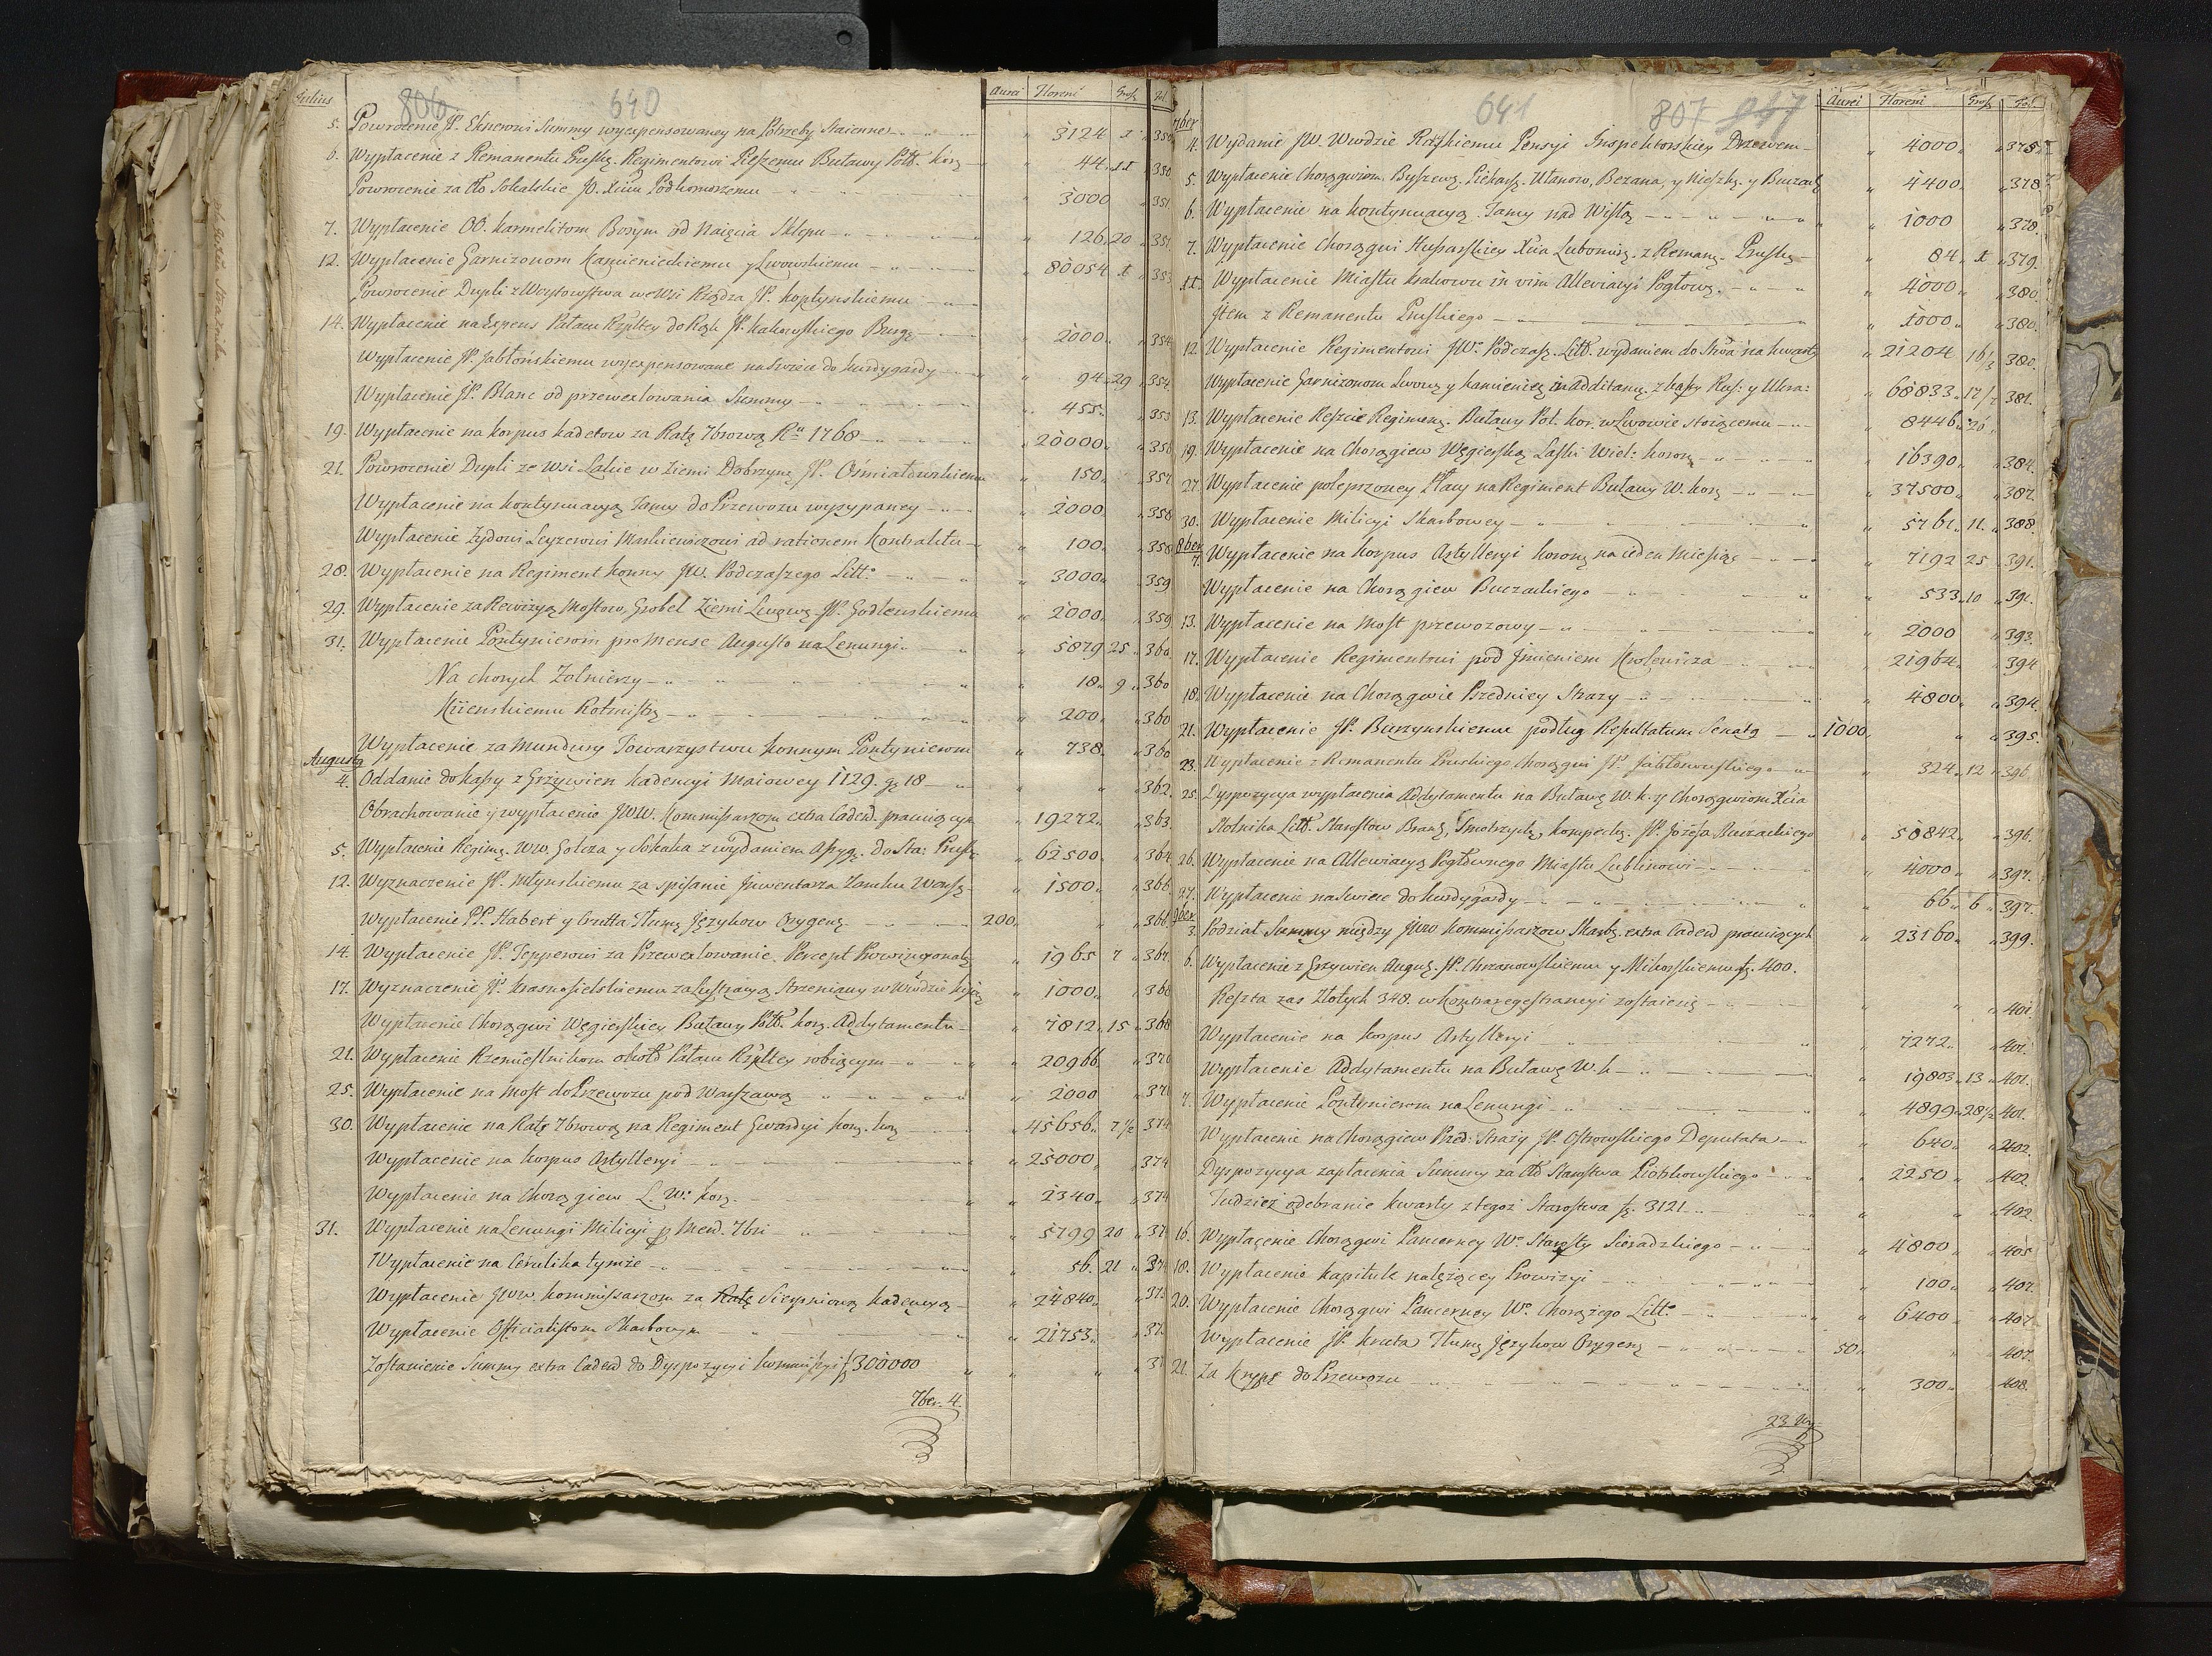 Julius 806. 640 Aurei Floreni Grosz fol
5. Powrocenie JP. Summy wyexpensowaney na Potrzeby Staienne 3124 x 350
6. Wypłacenie z Remanentu Prusk. Regimentowi Pieszemu Buławy Pol. kor. 44 xx 350
Powrocenie za Cło Sokalskie JO. Xciu Podkomorzemu 3000 351
7. Wypłacenie OO. Karmelitom Bosym od Naięcia Sklepu 126 20 351
12. Wypłacenie Garnizonom Kamienieckiemu y Lwowskiemu 80054 x 353
Powrocenie Dupli z we Wsi Rządza JP. Koptynskiemu
14. Wypłacenie na Expens Pałacu Rzpltey do Rąk JP. Burg. 2000 354
Wypłacenie JP. Jabłońskiemu wyexpensowane na Swiece do kurdygardy 94 29 354
Wypłacenie JP. Blanc od przewexlowania Summy 455 353
19. Wypłacenie na korpus kadetow za Ratę 7browę Ru 1768 20000 356
21. Powrocenie Dupli ze Wsi Lakie w Ziemi Dobrzyn. JP. Ośmiałowskiemu 150 357
Wypłacenie na kontynuacyą Tamy do Przewozu wysypaney 2000 358
Wypłacenie Żydowi Leyzerowi ad rationem Kontraktu 100 358
28. Wypłacenie na Regiment konny JW. Podczaszego Litt. 3000 359
29. Wypłacenie za Rewizyą Mostow, Grobel Ziemi JP. Godlewskiemu 2000 359
31. Wypłacenie Pontynierom pro Mense Augusto na Lenungi 5879 25 360
Na chorych Żolnierzy 18 9 360
Kiienskiemu Rotmistrz. 200 360
Wypłacenie za Mundury Towarzystwu konnym Pontynierom 738 360
Augustg
4. Oddanie do kassy z Grzywien kadencyi Maiowey 1129. gr 18 362
Obrachowanie y wypłacenie JWW. Kommissarzom extra Cadend. pracuiącym 19272 363
5. Wypłacenie Regim. WW. Golcza y z wydaniem Assyg. do Sta: Prusk. 62500 364
12. Wyznaczenie JP. Młynskiemu za spisanie Jnwentarza Zamku Warsz. 1500 366
Wypłacenie PP. Habert y Crutta Tłum. Języków Oryent. 200 366
14. Wypłacenie JP. Tepperowi za Przewexlowanie Percept Prowizyonal. 1965 7 367
17. Wyznaczenie JP. Krasnosielskiemu za Lustracyą w Wwodzie 1000 368
Wypłacenie Chorągwi Węgierskiey Buławy Pol. kor. Addytamentu 7812 15 368
21. Wypłacenie Rzemieslnikom około Pałacu Rzpltey robiącym 20966 370
25. Wypłacenie na Most do Przewozu pod Warszawą 2000
30. Wypłacenie na Ratę 7browę na Regiment Gwardyi kon. kor. 45656 7½ 374
Wypłacenie na korpus Artylleryi 25000 374
Wypłacenie na Chorągiew L. W. kor. 2340 374
31. Wypłacenie na Lenungi Milicyi p. Mens. 7bri 5799 20 37
Wypłacenie na Cerulika tymże 56 21
Wypłacenie JWW. Kommissarzom za Ratę Sierpniową kadencyą 24840
Wypłacenie Officialistom Skarbowym 21753 37
Zostawienie Summy extra Cadend do Dyspozycyi kommissyi f 300000
7ber. 4.
641 807 847 Aurei Floreni Grosz Fol
7ber
4. Wydanie JW. Wwodzie Rawskiemu Pensyi Jnspektorskiey Drzewem 4000 375
5. Wypłacenie Chorągwiom Byszew. Piekars. Ułanow, Bezana, y y Buczack. 4400 378
6. Wypłacenie na kontynuacyą Tamy nad Wisłą 1000 378
7. Wypłacenie Chorągwi Hussarskiey Xcia Lubomir. z Reman. Prusk. 84 x 379
11. Wypłacenie Miastu krakowu in vim Alleviacyi Pogłown. 4000 380
Jtem z Remanentu Pruskiego 1000 380
12. Wypłacenie Regimentowi JW. Podczasz. Litt. wydaniem do Stwa na kwartę 21204 16/3 380
Wypłacenie Garnizonom Lwow. y kamieniec. in additam. z kassy Rus: y Ukra: 68833 17/ 381
13. Wypłacenie Reszcie Regimen. Buławy Pol. kor. w Lwowie stoiącemu 8446 20
19. Wypłacenie na Chorągiew Węgierską Laski Wiel: koron. 16390 384
27. Wypłacenie polepszoney Płacy na Regiment Buławy W. kor. 37500 387
30. Wypłacenie Milicyi Skarbowey 5761 11 388
8ber
7. Wypłacenie na korpus Artylleryi koron. na ieden Miesiąc 7192 25 391
Wypłacenie na Chorągiew Buczackiego 533 10 391
13. Wypłacenie na Most przewozowy 2000 393
17. Wypłacenie Regimentowi pod Jmieniem Krolewicza 21964 394
18. Wypłacenie na Chorągwie Przedniey Strazy 4800 394
21. Wypłacenie JP. Burzynskiemu podług Resultatum Senatg 1000 395
23. Wypłacenie z Remanentu Pruskiego Chorągwi JP. Jabłonowskiego 324 12 396
25. Dyspozycya wypłacenia Addytamentu na Buławę W. k. y Chorągwiom Xcia
Stolnika Litt. Starostow Bran. Smotrzyck. JP. Józefa Buczackiego 50842 396
26. Wypłacenie na Allewiacyą Pogłownego Miastu Lublinowi 4000 397
27. Wypłacenie na Swiece do kurdygardy 66 6 397
9ber
3. Podział Summy między JWW Kommissarzow Skarb. extra Cadend pracuiących 23160 399
6. Wypłacenie z Grzywien Augus. JP. Chrzanowskiemu y Mikorskiemu f. 400.
Reszta zas Złotych 348. w kontraregestrancyi zostaienie 401
Wypłacenie na korpus Artylleryi 7272 401
Wypłacenie Addytamentu na Buławę W. k 19803 13 401
7. Wypłacenie Pontynierom na Lenungi 4899 28½ 401
Wypłacenie na Chorągiew Przed: Straży JP. Ostrowskiego Deputata 640 402
Dyspozycya zapłacenia Summy za Cło Starostwa Piotrkowskiego 2250 402
Tudziesz odebranie kwarty z tegoz Starostwa f. 3121 402
16. Wypłacenie Chorągwi Pancerney W. Starosty Sieradzkiego 4800 405
18. Wypłacenie kapitule należącey Prowizyi 100 407
20. Wypłacenie Chorągwi Pancerney W. Chorążego Litt. 6400 407
Wypłacenie JP. kruta Tłum. Języków Oryent. 50 407
21. Za Krypę do Przewozu 300 408